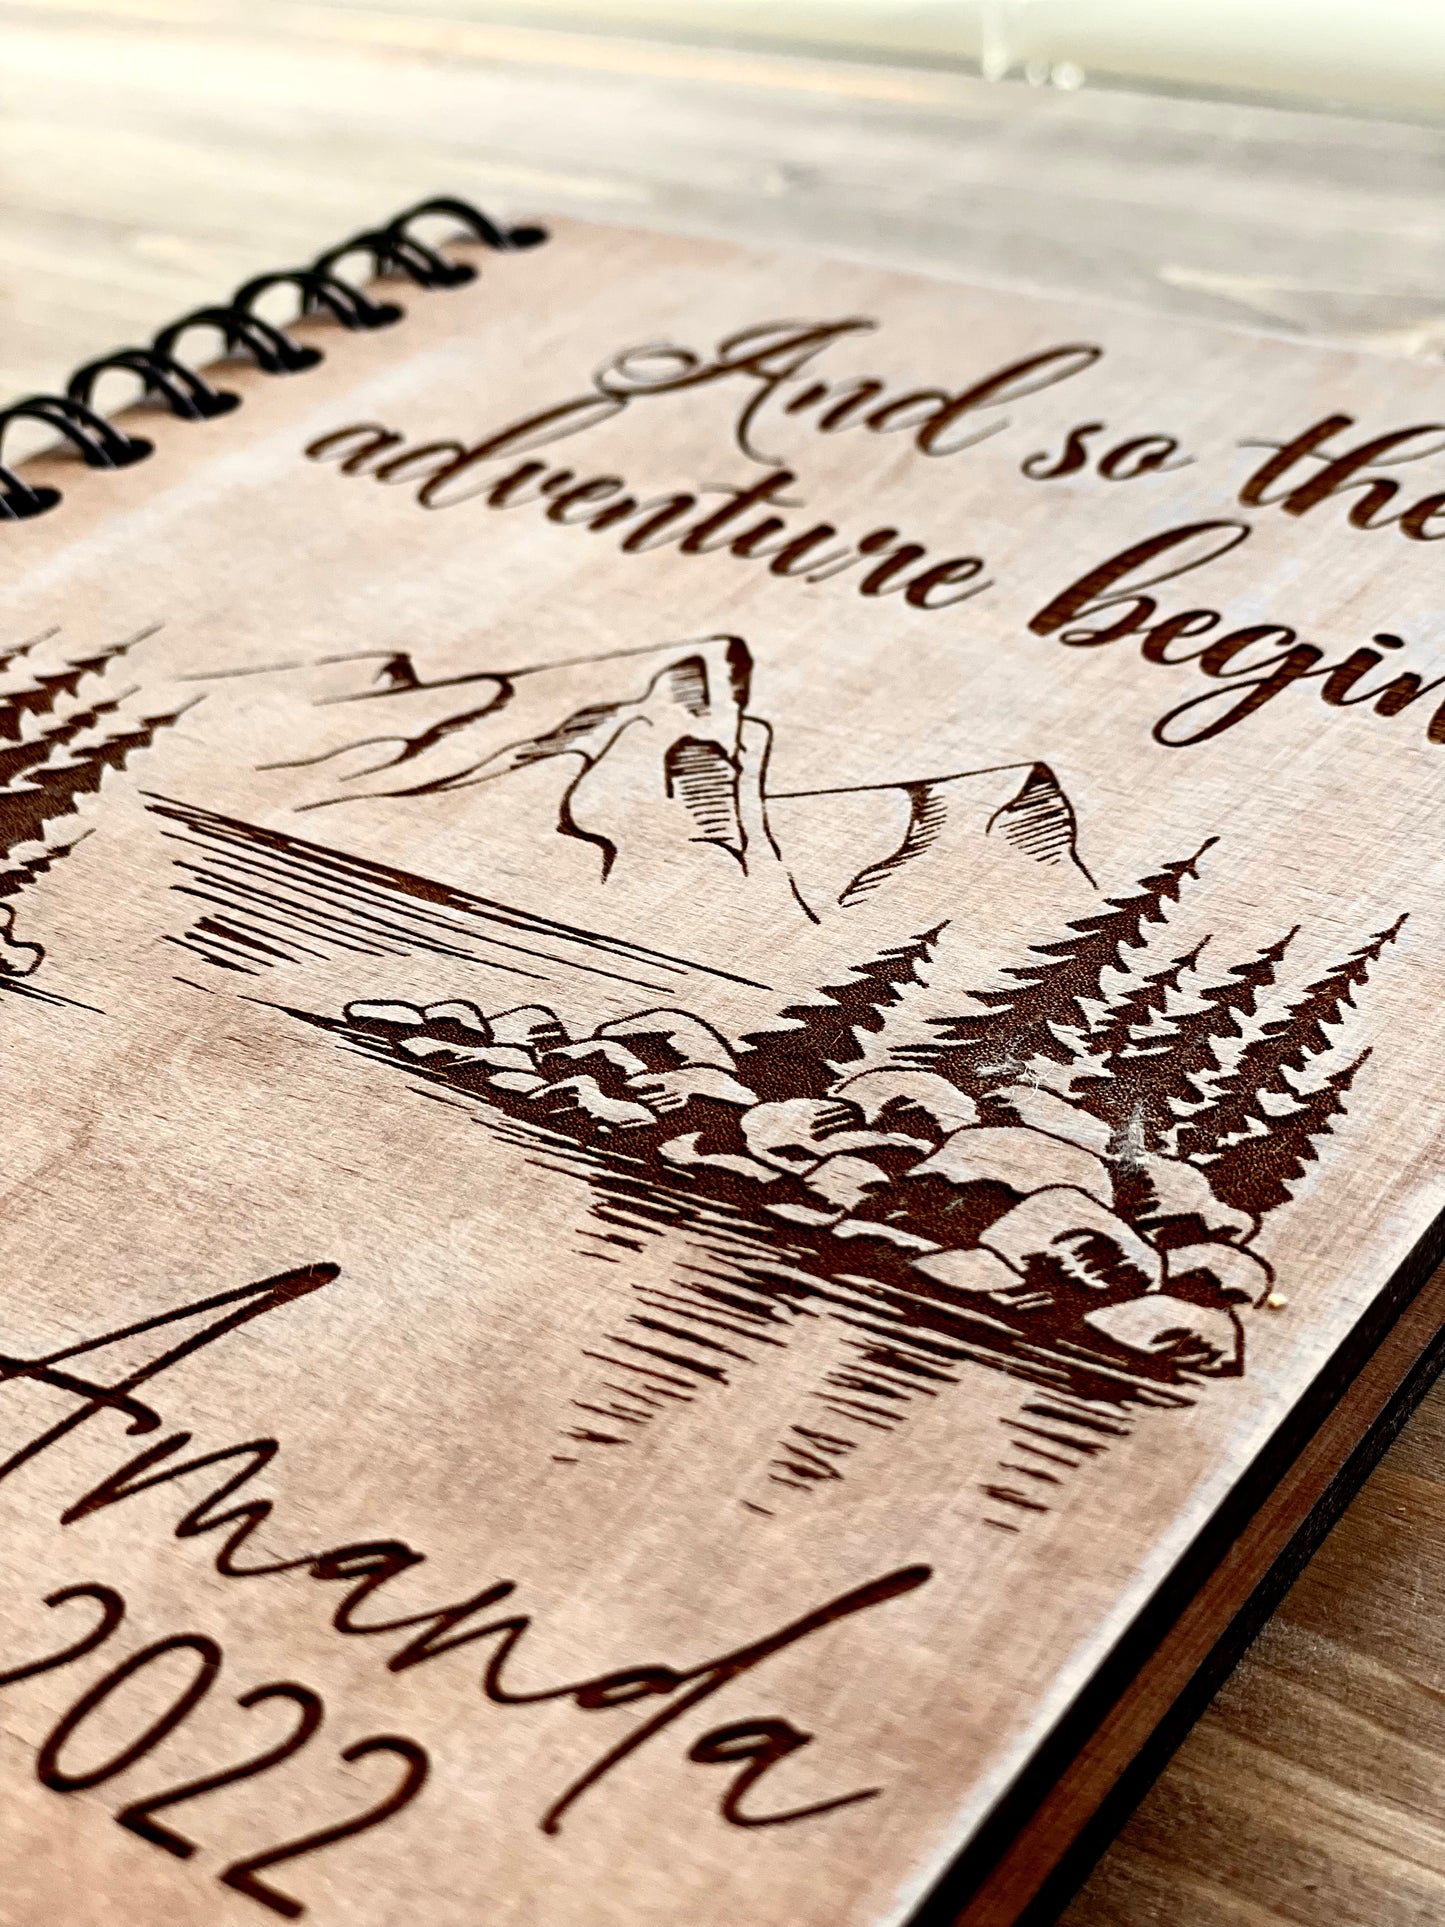 And so the
adventure begin
Amanda
2022